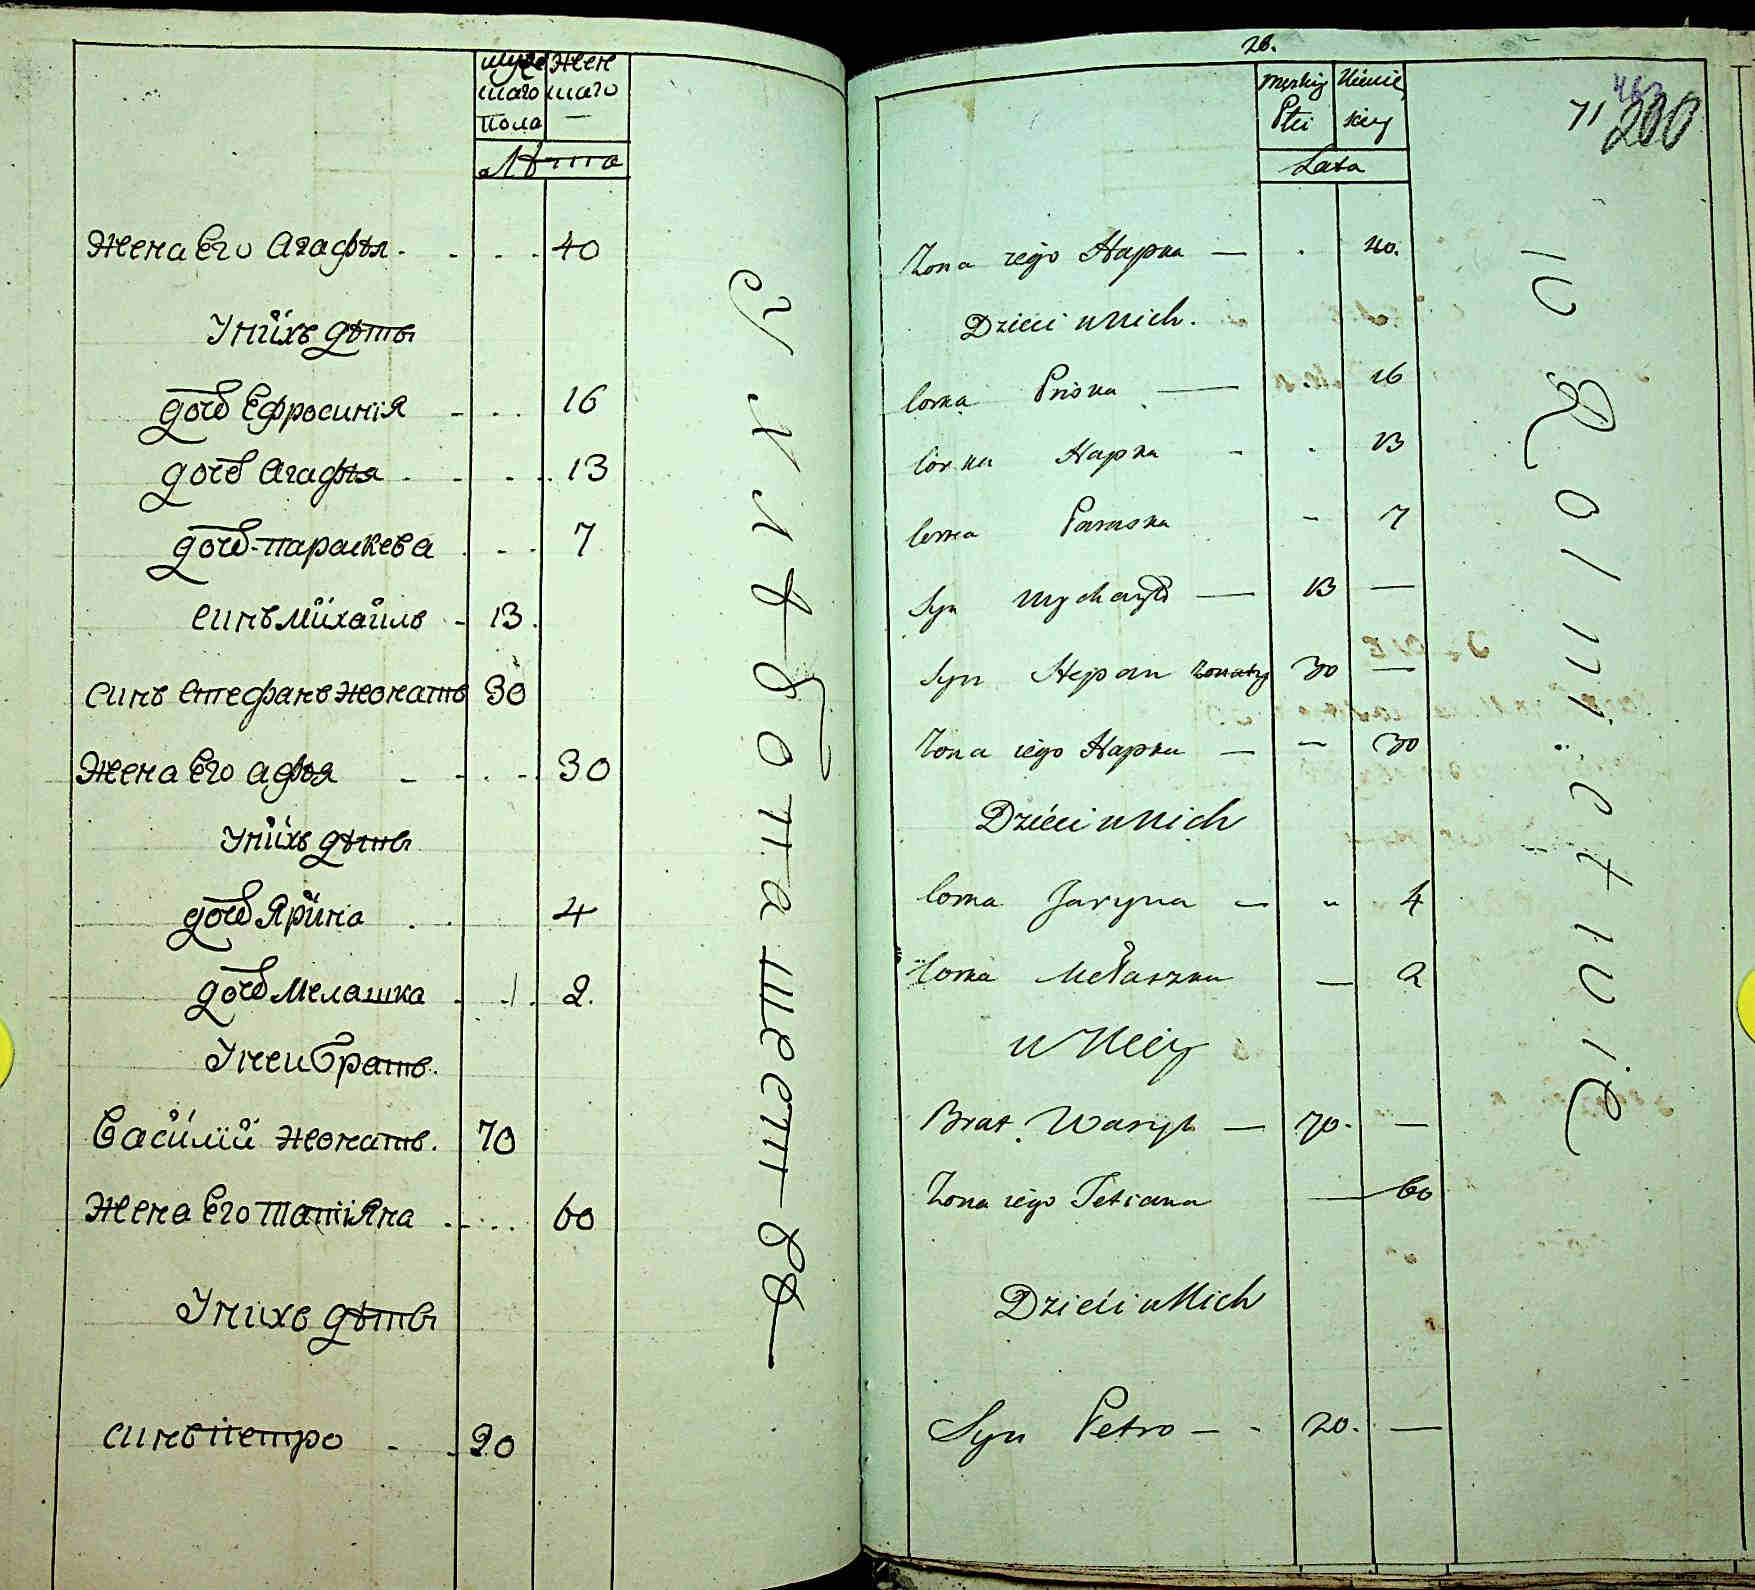 мужескаго Жен
скаго
пола —
Лѣта
Жена Его Агафья - - - - 40
У нихъ дѣти
дочь Ефросинія - - - 16
дочь Агафья - - - - 13
дочь Параскева - - - 7
синъ Михаилъ - 13.
синъ Стефанъ жонатъ 30
Жена Его Афья - - - - 30
У нихъ дѣти
дочь Ярина - - 4
дочь Мелашка - - 2.
У неи братъ.
Василій жонатъ. 70
Жена Его Татіяна - - - - 60
У нихъ дѣти
синъ Петро - - 20
У Хлѣбопашествѣ
26.
Męzkiy Płci
Lata
463
71 200
Zona iego Hapka — . 40.
Dzieci u Nich.
Corka Priska — . 16
Corka Hapka - . 13
Corka Paraska - 7
Syn Mychayło — 13 —
Syn Stepan Zonaty 30 —
Zona iego Hapka — - 30
Dzieci u Nich
Corka Jaryna — - 4
Corka Mełaszka — 2
u Niey
Brat Wasyl — 70. —
Zona iego Tetiana — 60
Dzieci u Nich
Syn Petro — - 20. —
w Rolnictwie